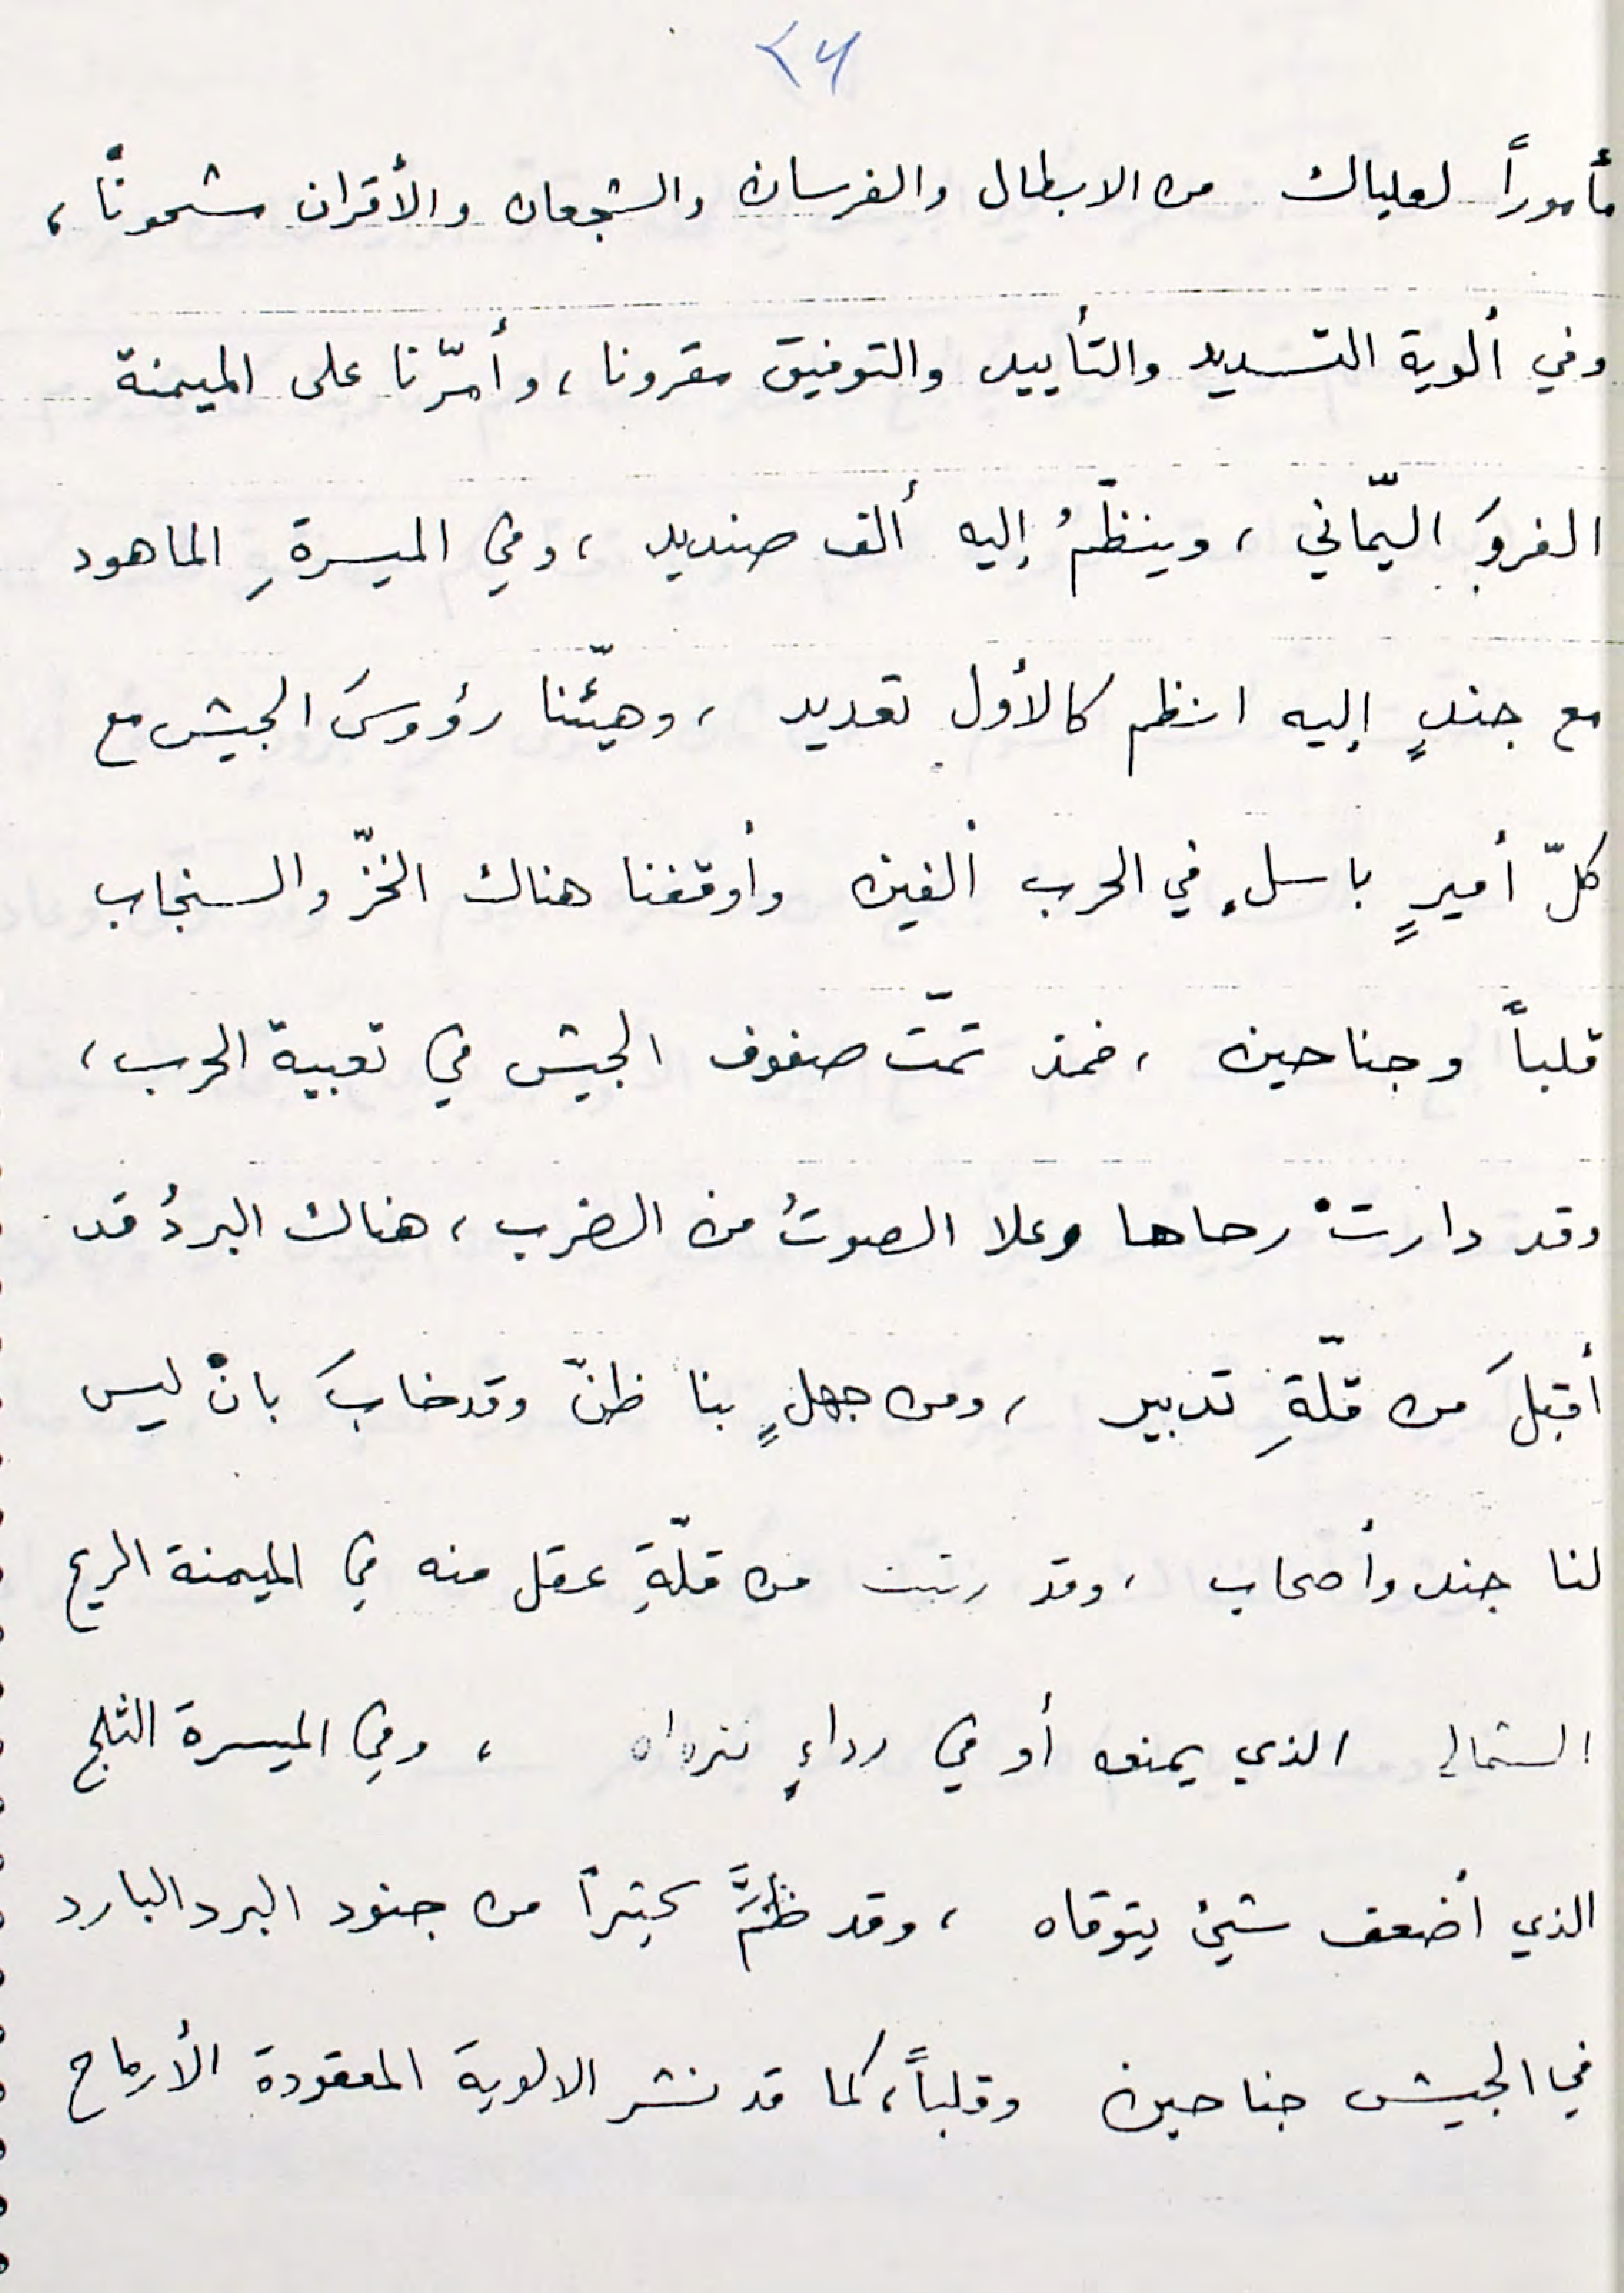 ٢٦
مأموراً لعلياك من الابطال والفرسان والشجعان والأقران مشحوناً،
وفي ألوية التسديد والتأييد والتوفيق مقرونا، وأمّرنا على الميمنة
الفروَ اليّماني، وينظّمُ إليه ألف صنديد، وفي الميسرةِ الماهود
مع جندٍ إليه انظم كالأول تعديد، وهيّئنا رؤوسَ الجيش مع
كلّ أميرٍ باسلٍ في الحرب ألفين وأوقفنا هناك الخزّ والسنجاب
قلباً وجناحين، فمذ تمّت صفوف الجيش في تعبية الحرب،
وقد دارتْ رحاها وعلا الصوتُ من الضرب، هناك البردُ قد
أقبلَ من قلّةِ تدبير، ومن جهلٍ بنا ظنّ وقد خابَ بانْ ليس
لنا جند وأصحاب، وقد رتبت من قلّةِ عقل منه في الميمنة الريح
الشمالي الذي يمنعه أو في رداءٍ، وفي الميسرة الثلج
الذي أضعف شيئ يتوقاه، وقد ظمَّ كثيراً من جنود البرد البارد
في الجيش جناحين وقلباً، كما قد نشر الالوية المعقودة الأرماح